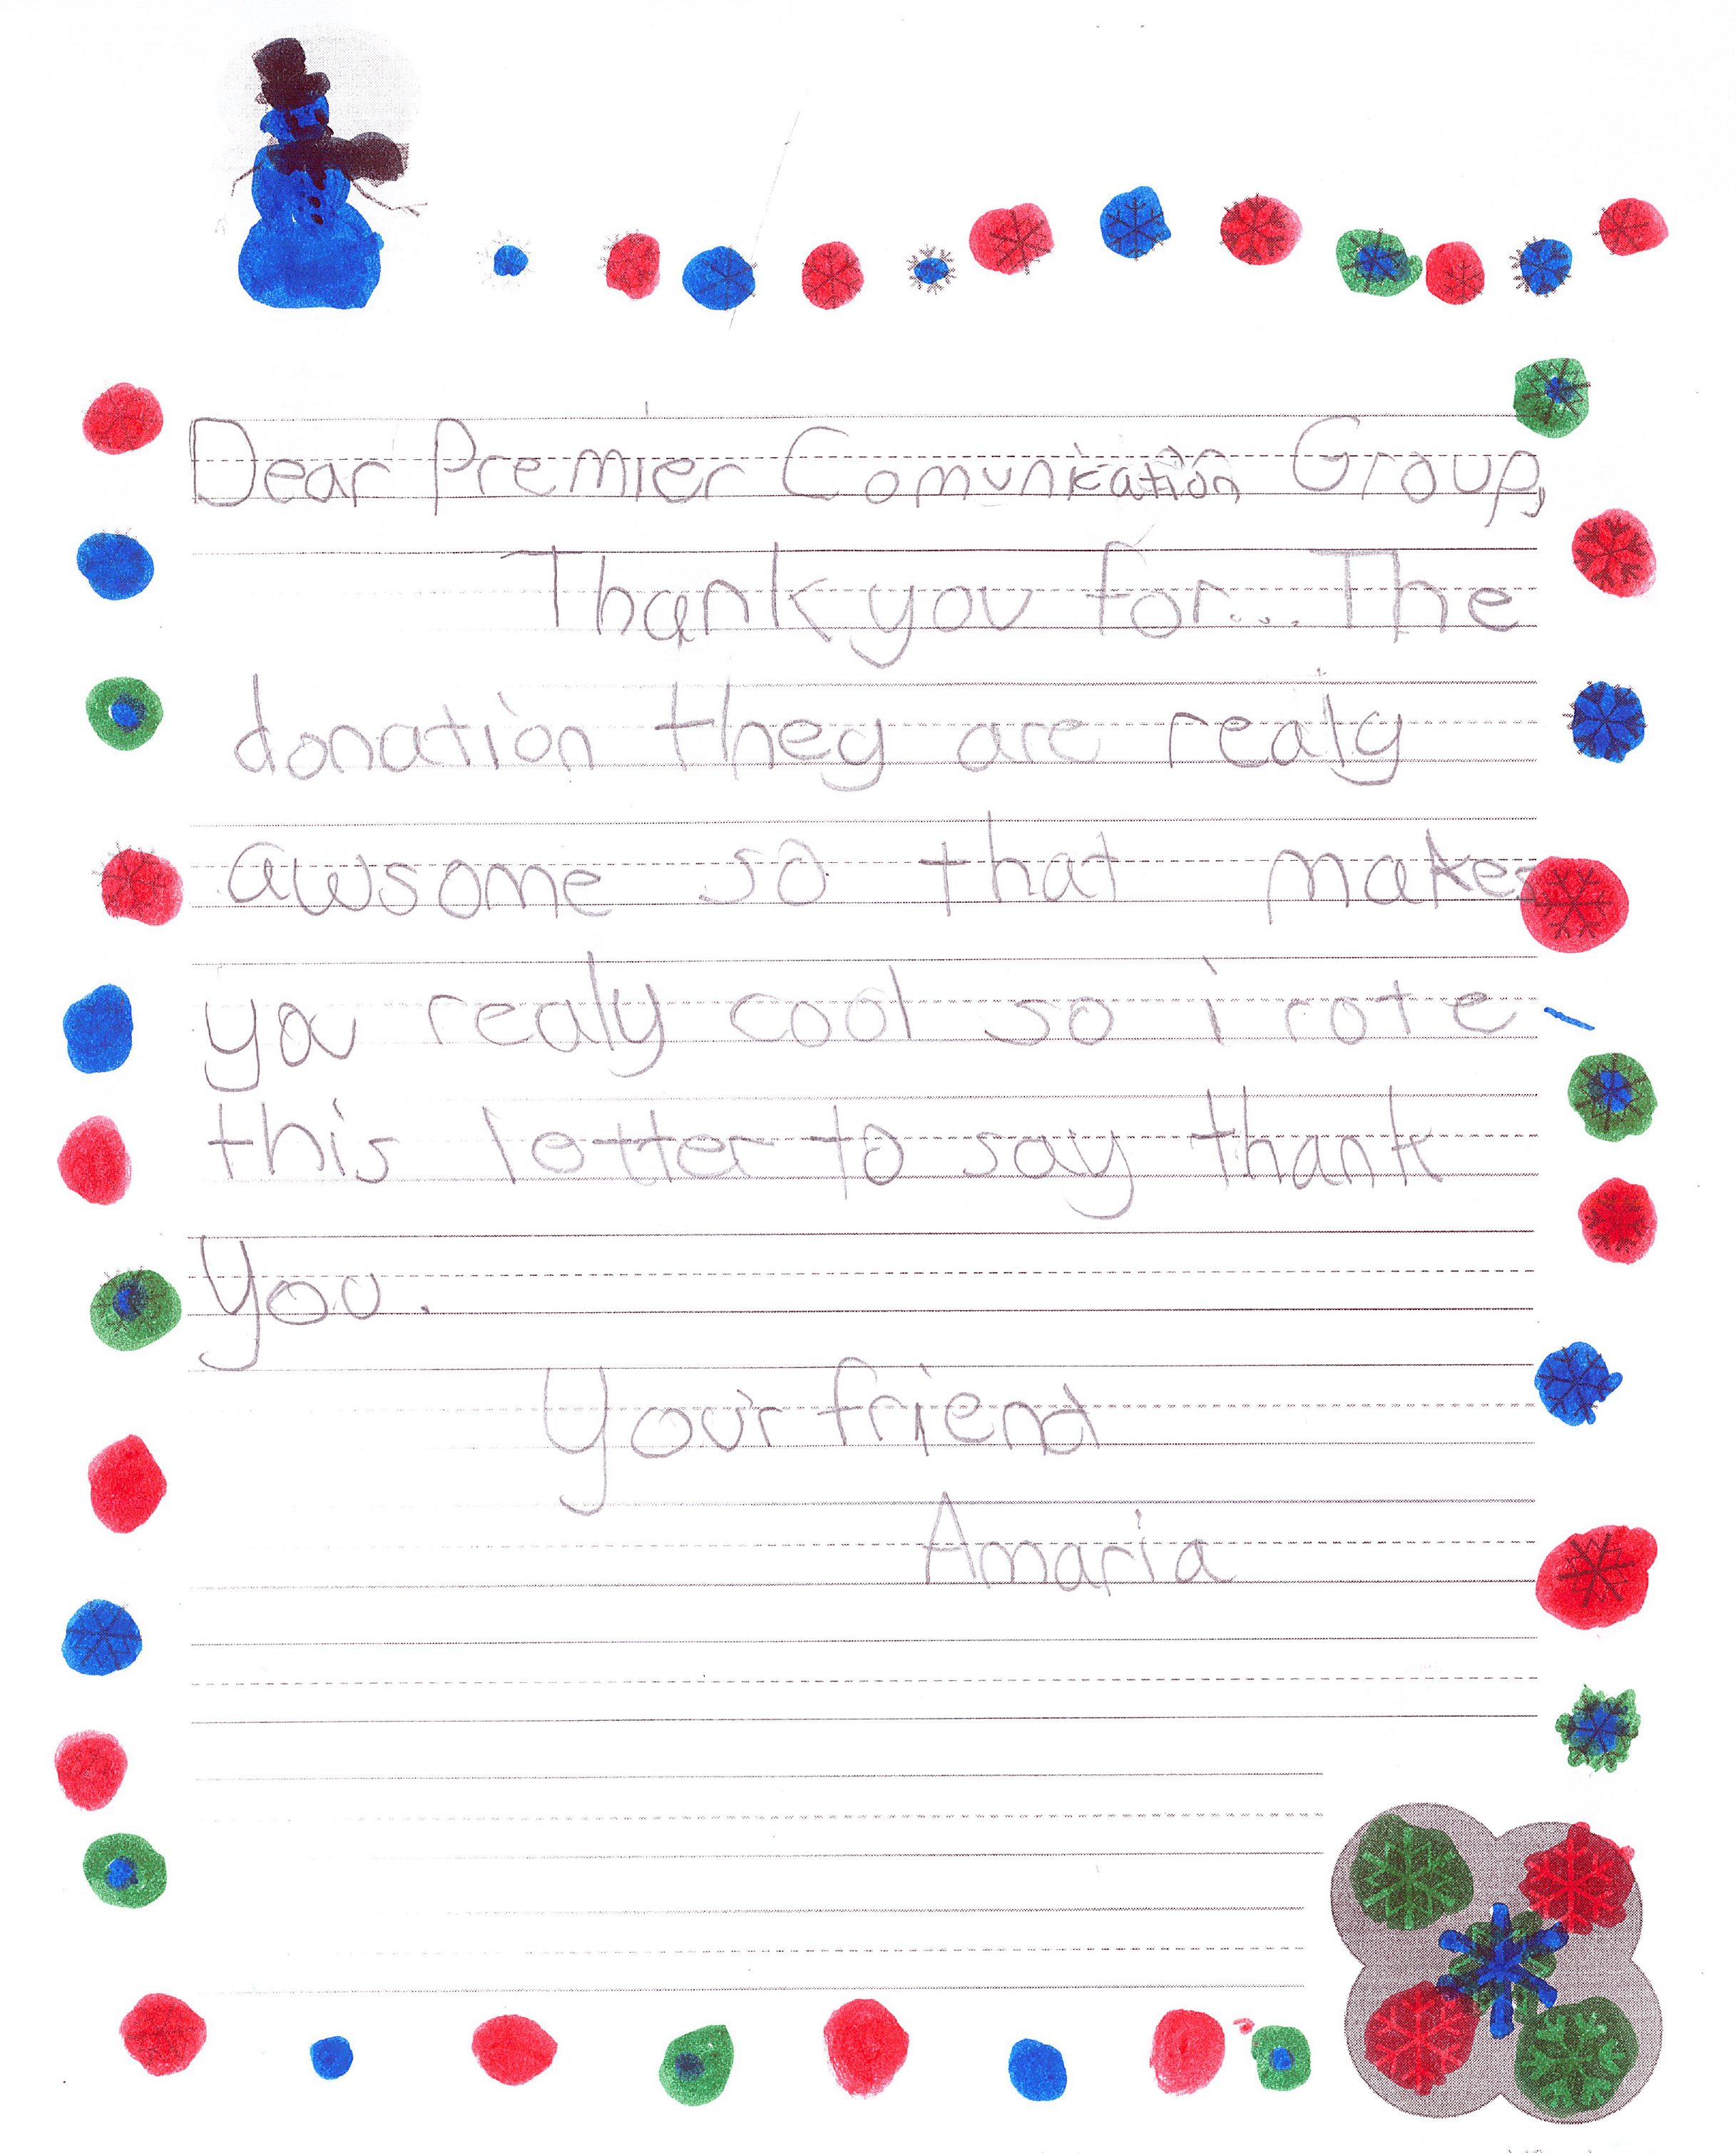 Dear Premier Comunication Group,
Thank you for... The
donation they are realy
awsome so that makes
you realy cool so i rote
this letter to say thank
you.
Your friend
Amaria